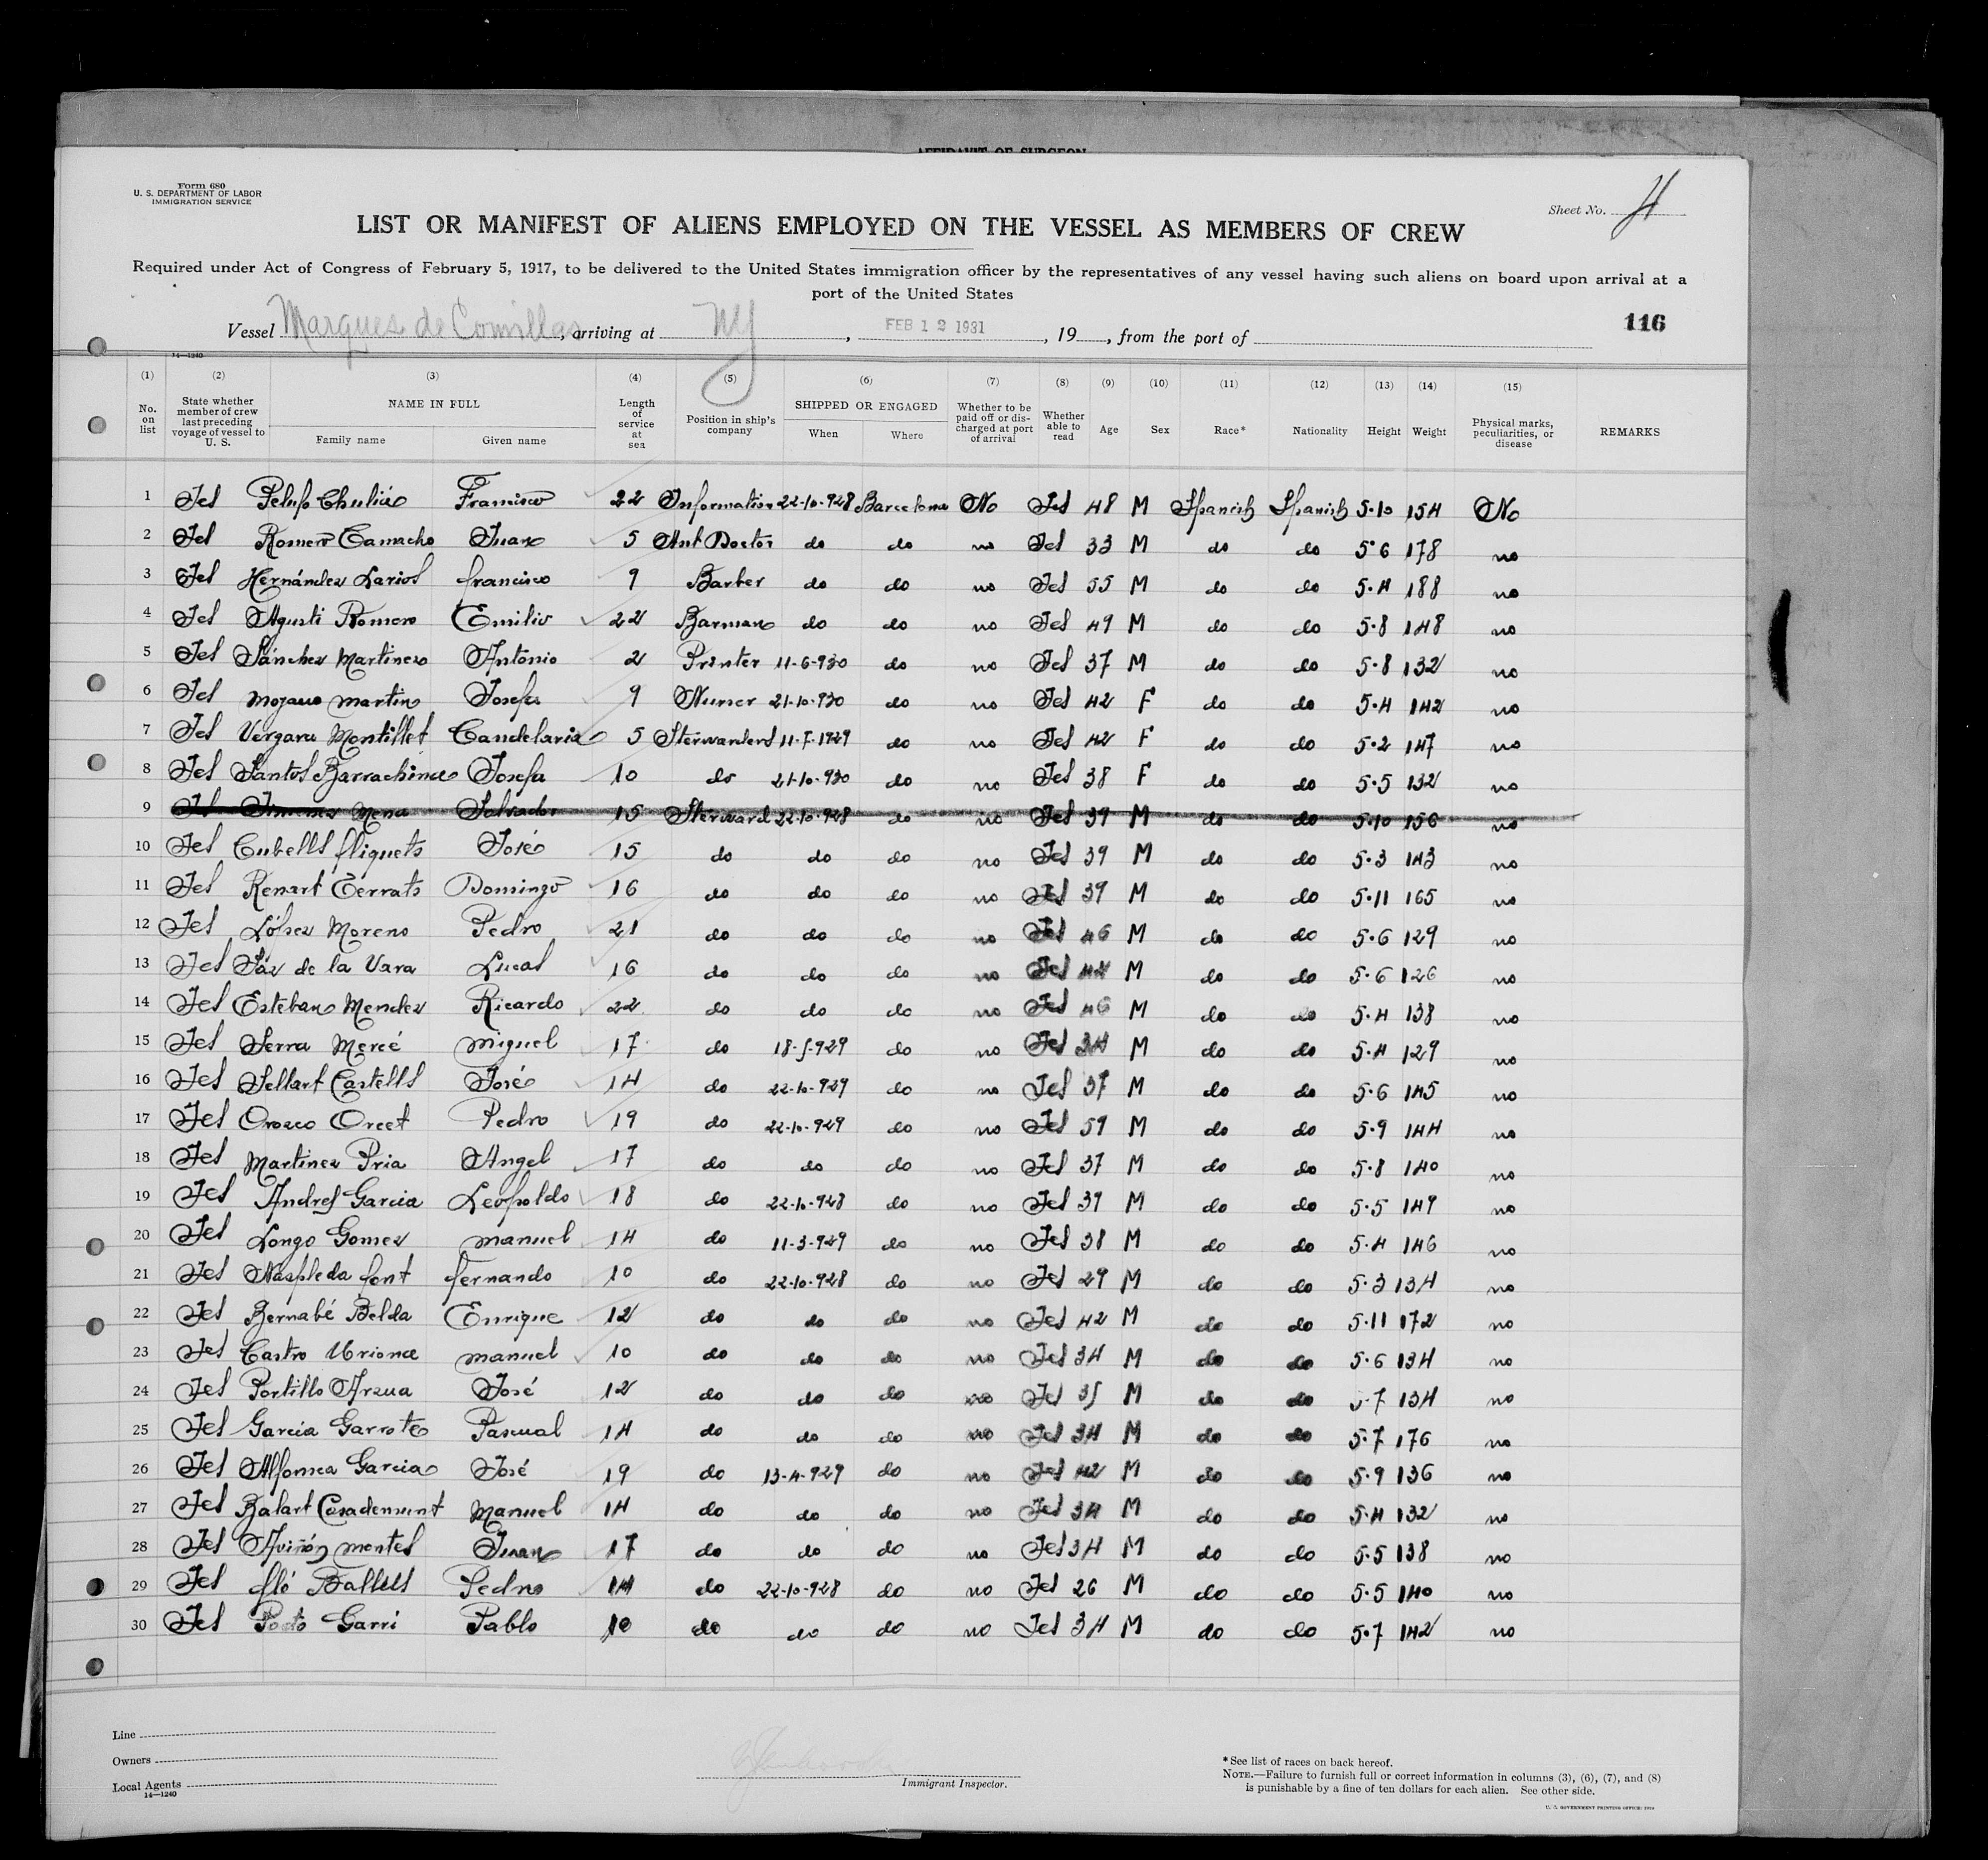 AFFIDAVIT OF SURGEON
Form 680
U. S. DEPARTMENT OF LABOR
IMMIGRATION SERVICE
Sheet No. 4
LIST OR MANIFEST OF ALIENS EMPLOYED ON THE VESSEL AS MEMBERS OF CREW
Required under Act of Congress of February 5, 1917, to be delivered to the United States immigration officer by the representatives of any vessel having such aliens on board upon arrival at a
port of the United States
Vessel Marques de Comillas, arriving at NY, FEB 12 1931, 19, from the port of
116
14—1240
(1) (2) (3) (4) (5) (6) (7) (8) (9) (10) (11) (12) (13) (14) (15)
No. on list State whether member of crew last preceding voyage of vessel to U. S. NAME IN FULL Family name Given name Length of service at sea Position in ship's company SHIPPED OR ENGAGED When Where Whether to be paid off or discharged at port of arrival Whether able to read Age Sex Race* Nationality Height Weight Physical marks, peculiarities, or disease REMARKS
1 Yes Chuliá Francisco 22 Information 22-10-928 Barcelona No Yes 48 M Spanish Spanish 5-10 154 No
2 Yes Romero Camacho Juan 5 Doctor do do no Yes 33 M do do 5-6 178 no
3 Yes Hernández Larios francisco 9 Barber do do no Yes 55 M do do 5-4 188 no
4 Yes Agusti Romero Emilio 22 Barman do do no Yes 49 M do do 5-8 148 no
5 Yes Sánchez Martinez Antonio 2 Printer 11-6-930 do no Yes 37 M do do 5-8 132 no
6 Yes Moyano martin Josefa 9 Nurser 21-10-930 do no Yes 42 F do do 5-4 142 no
7 Yes Vergara Montillet Candelaria 5 11-7-1929 do no Yes 42 F do do 5-2 147 no
8 Yes Santos Barrachina Josefa 10 do 21-10-930 do no Yes 38 F do do 5-5 132 no
9 Yes Jimenez Mena Salvador 15 Steward 22-10-928 do no Yes 39 M do do 5-10 156 no
10 Yes Cubells José 15 do do do no Yes 39 M do do 5-3 143 no
11 Yes Renart Domingo 16 do do do no Yes 39 M do do 5-11 165 no
12 Yes López Moreno Pedro 21 do do do no Yes 46 M do do 5-6 129 no
13 Yes Sáz de la Vara Lucas 16 do do do no Yes M do do 5-6 126 no
14 Yes Esteban Mendez Ricardo 22 do do do no Yes 46 M do do 5-4 138 no
15 Yes Serra Mercé miguel 17 do 18-5-929 do no Yes 34 M do do 5-4 129 no
16 Yes Sellart Castells José 14 do 22-10-929 do no Yes 37 M do do 5-6 145 no
17 Yes Orozco Orcet Pedro 19 do 22-10-929 do no Yes 59 M do do 5-9 144 no
18 Yes Martinez Pria Angel 17 do do do no Yes 37 M do do 5-8 140 no
19 Yes Andres Garcia Leopoldo 18 do 22-10-928 do no Yes 39 M do do 5-5 149 no
20 Yes Longo Gomez manuel 14 do 11-3-929 do no Yes 38 M do do 5-4 146 no
21 Yes Naspleda font fernando 10 do 22-10-928 do no Yes 29 M do do 5-3 134 no
22 Yes Bernabé Belda Enrique 12 do do do no Yes 42 M do do 5-11 172 no
23 Yes Castro Uriona manuel 10 do do do no Yes 34 M do do 5-6 134 no
24 Yes Portillo Arzua José 12 do do do no Yes 35 M do do 5-7 134 no
25 Yes Garcia Garrote Pascual 14 do do do no Yes 34 M do do 5-7 176 no
26 Yes Alfonsea Garcia José 19 do 13-4-929 do no Yes 42 M do do 5-9 136 no
27 Yes Balart Casademunt Manuel 14 do do do no Yes 34 M do do 5-4 132 no
28 Yes Aviñó montes Juan 17 do do do no Yes 34 M do do 5-5 138 no
29 Yes Pedro 14 do 22-10-928 do no Yes 26 M do do 5-5 140 no
30 Yes Garri Pablo 10 do do do no Yes 34 M do do 5-7 142 no
Line
Owners
Local Agents
14—1240
Immigrant Inspector.
* See list of races on back hereof.
NOTE.—Failure to furnish full or correct information in columns (3), (6), (7), and (8)
is punishable by a fine of ten dollars for each alien. See other side.